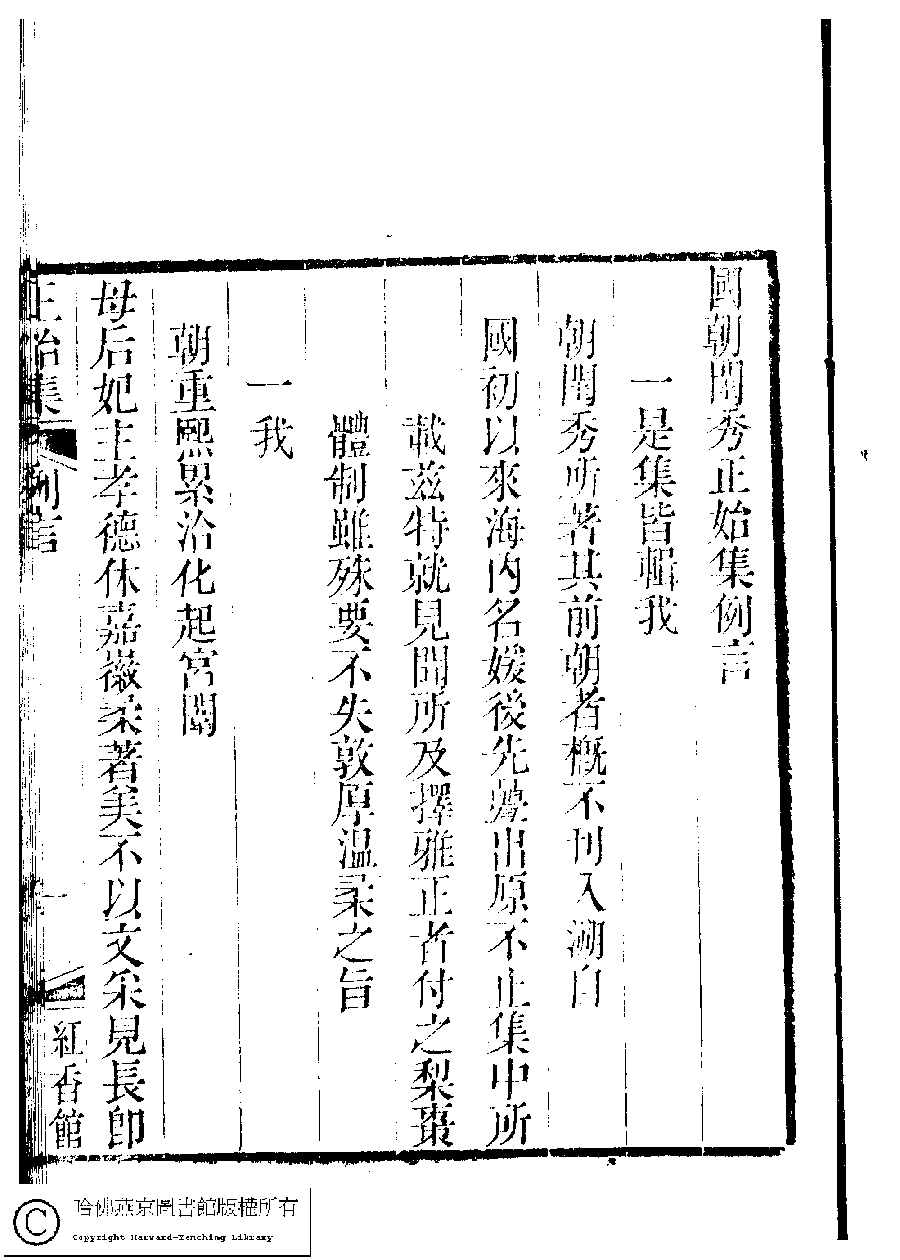 國朝閨秀正始集例言
一是集皆輯我
朝閨秀所著其前朝者槪不刊入溯自
國初以來海內名媛後先疊出原不止集中所
載兹特就見聞所及擇雅正者付之梨棗
體制雖殊要不失敦厚溫柔之旨
一我
朝重熙累洽化起宮闈
母后妃主孝德休嘉徽柔著美不以文采見長卽
正始集 例言 一 紅香館
哈佛燕京圖書館版權所有
Copyright Harvard-Yenching Library